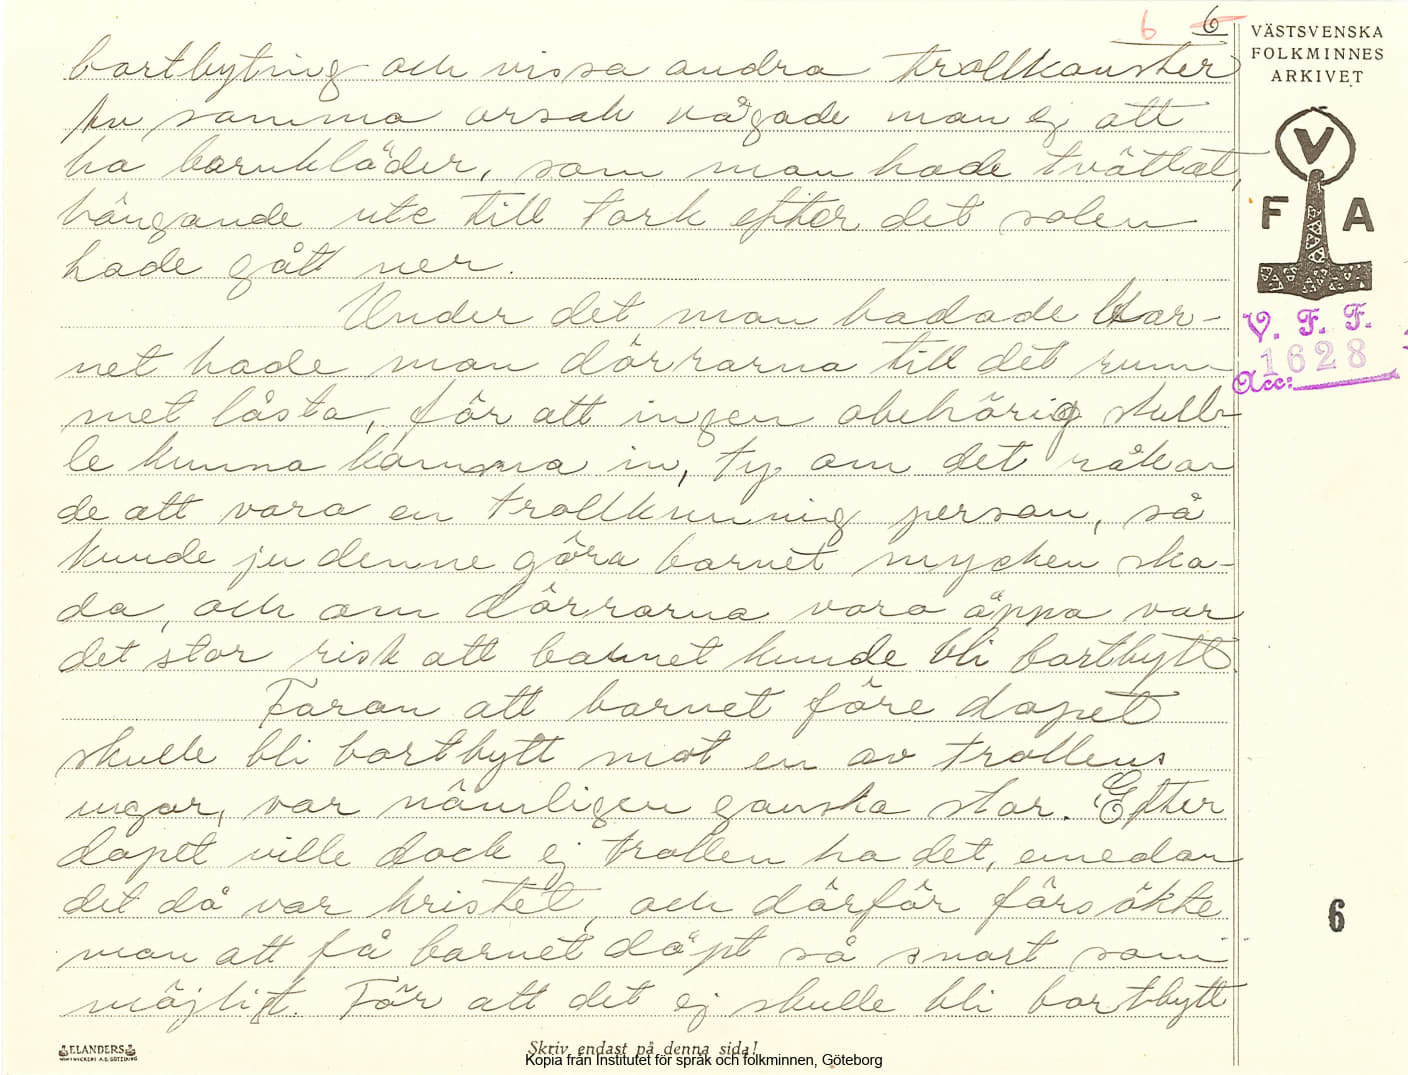 6 6
VÄSTSVENSKA
FOLKMINNES
ARKIVET
V
F A
V. F. F.
1628
Acc:
bortbytning och vissa andra trollkonster
Av samma orsak vågade man ej att
ha barnkläder, som man hade tvättat,
hängande ute till tork efter det solen
hade gått ner.
Under det man badade bar-
net hade man dörrarna till det rum-
met låsta, för att ingen obehörig skull-
le kunna komma in, ty om det råkar
de att vara en trollkunnig person, så
kunde ju denne göra barnet mycken ska-
da, och om dörrarna voro öppa var
det stor risk att barnet kunde bli bortbytt.
Faran att barnet före dopet
skulle bli bortbytt mot en av trollens
ungar, var nämligen ganska stor. Efter
dopet ville dock ej trollen ha det, emedan
det då var kristet, och därför försökte
man att få barnet döpt så snart som
möjligt. För att det ej skulle bli bortbytt
6
ELANDERS
Skriv endast på denna sida!
Kopia från Institutet för språk och folkminnen, Göteborg